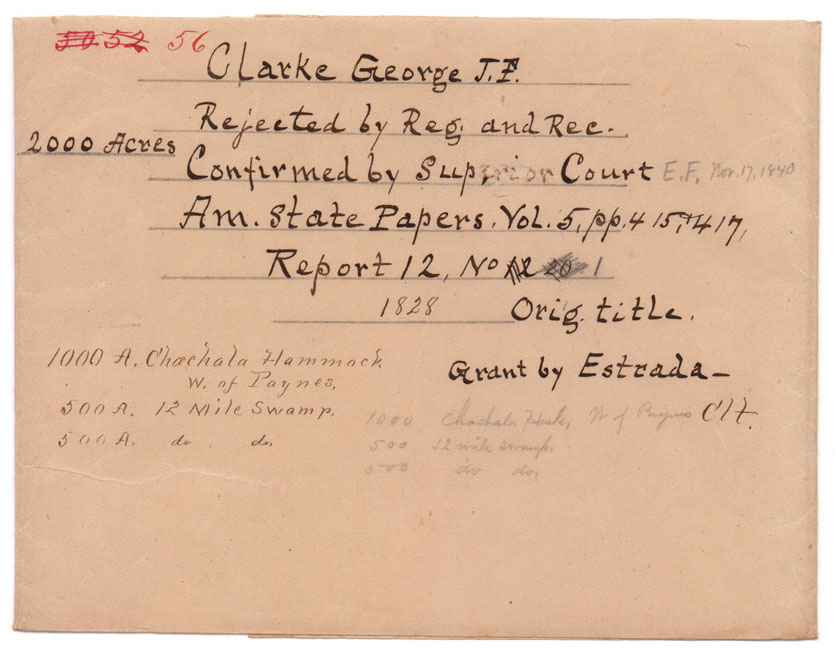 50 52 56
Clarke George J.F.
Rejected by Reg. and Rec.
2000 Acres
Confirmed by Superior Court E.F. Nov. 17, 1840
Am. State Papers. Vol. 5, pp. 415, + 417,
Report 12, No 1
1828 Orig. title.
1000 A. Chachala Hammock
W. of Paynes,
Grant by Estrada —
500 A. 12 Mile Swamp.
500 A. do. do.
1000 Chachala W of Paynes
500 12 mile swamp.
500 do do,